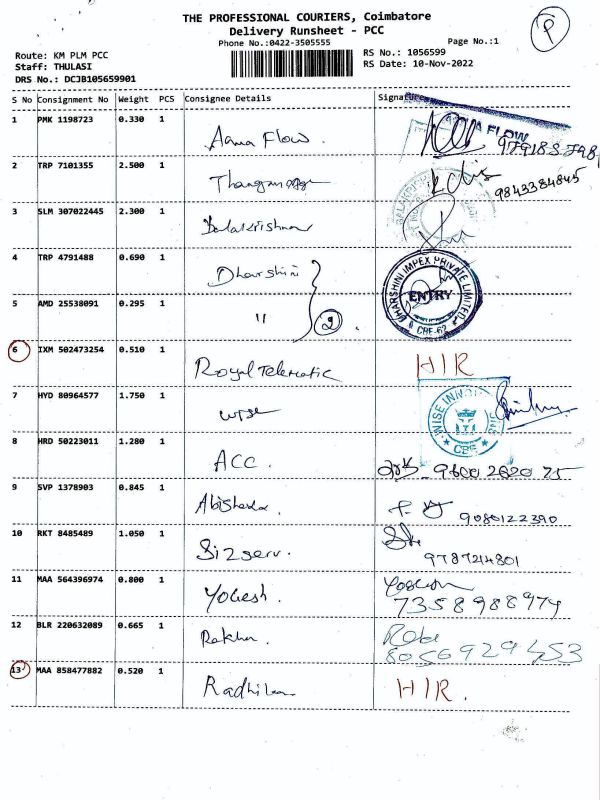 THE PROFESSIONAL COURIERS, Coimbatore
Delivery Runsheet - PCC
Phone No.:0422-3505555
Page No.:1
P
Route: KM PLM PCC
RS No.: 1056599
Staff: THULASI
RS Date: 10-Nov-2022
DRS No.: DCJB105659901
S No Consignment No Weight PCS Consignee Details Signature
1 PMK 1198723 0.330 1 Flow A FLOW
2 TRP 7101355 2.500 1 9843384845
3 SLM 307022445 2.300 1 Balakrishnan
4 TRP 4791488 0.690 1 Dharshini DHARSHINI IMPEX PRIVATE LIMITED ENTRY CBE-62
5 AMD 25538091 0.295 1 " 2
6 IXM 502473254 0.510 1 Royal Telematic HIR
7 HYD 80964577 1.750 1 wise WISE CBE
8 HRD 50223011 1.280 1 ACC. 9600 2020 75
9 SVP 1378903 0.845 1 9080122390
10 RKT 8485489 1.050 1 Sizserv. 9787214801
11 MAA 564396974 0.800 1 Yogesh. 7358988979
12 BLR 220632089 0.665 1 8056929453
13 MAA 858477882 0.520 1 Radhika HIR.